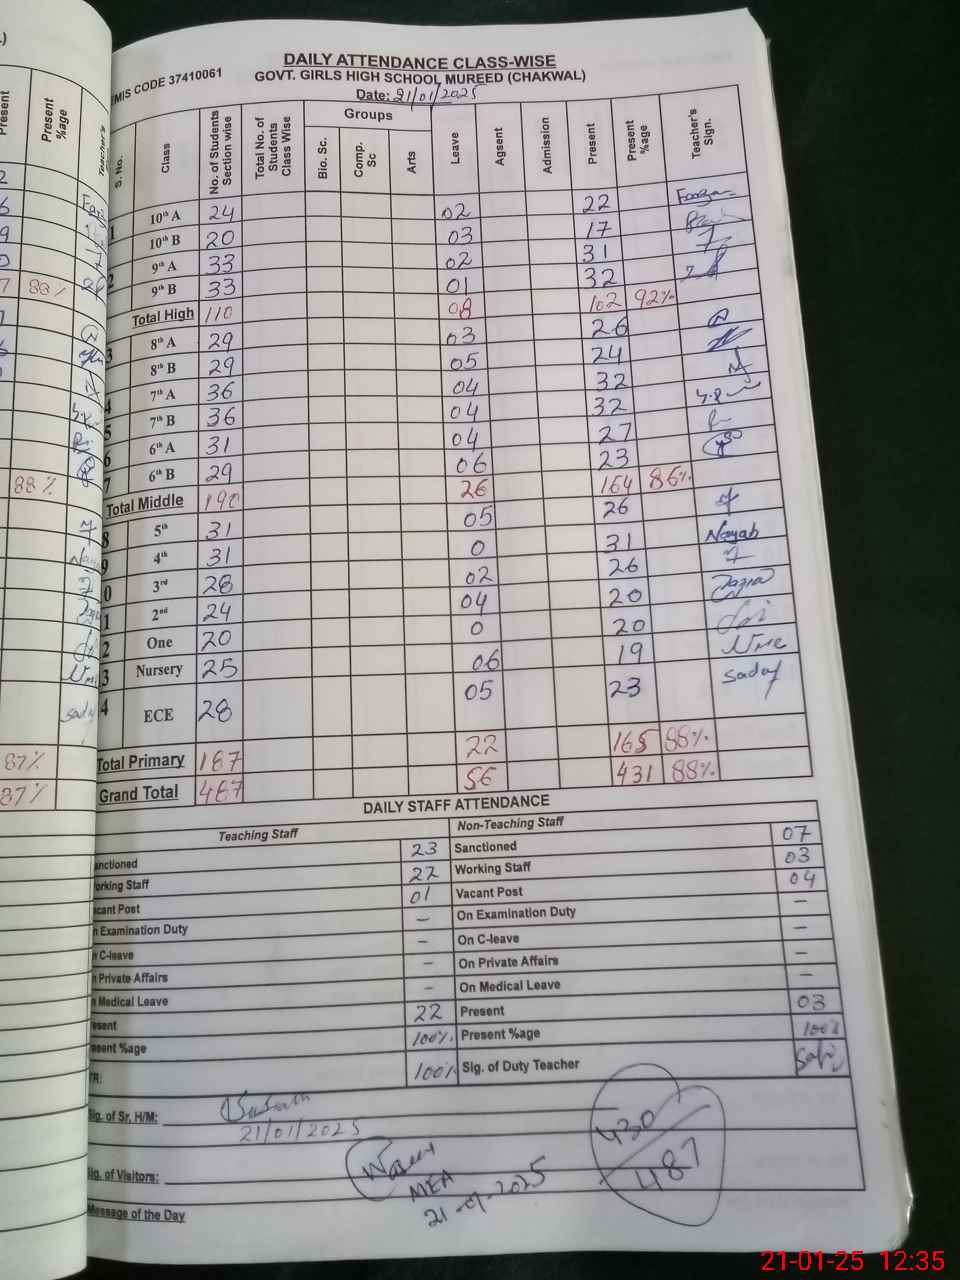 DAILY ATTENDANCE CLASS-WISE
EMIS CODE 37410061 GOVT. GIRLS HIGH SCHOOL MUREED (CHAKWAL)
Date: 21/01/2025
S. No. Class No. of Students Section wise Total No. of Students Class Wise Groups Bio. Sc. Comp. Sc Arts Leave Agsent Admission Present Present %age Teacher's Sign.
1 10th A 24 02 22
10th B 20 03 17
2 9th A 33 02 31
9th B 33 01 32
Total High 110 08 102 92%
3 8th A 29 03 26
8th B 29 05 24
4 7th A 36 04 32
5 7th B 36 04 32
6 6th A 31 04 27
7 6th B 29 06 23
Total Middle 190 26 164 86%
8 5th 31 05 26
9 4th 31 0 31 Nayab
0 3rd 28 02 26
1 2nd 24 04 20
2 One 20 0 20
3 Nursery 25 06 19
4 ECE 28 05 23 Sadaf
Total Primary 187 22 165 88%
Grand Total 487 56 431 88%
DAILY STAFF ATTENDANCE
Teaching Staff Non-Teaching Staff
anctioned 23 Sanctioned 07
orking Staff 22 Working Staff 03
acant Post 01 Vacant Post 04
n Examination Duty – On Examination Duty –
C-leave – On C-leave –
n Private Affairs – On Private Affairs –
n Medical Leave – On Medical Leave –
esent 22 Present 03
esent %age 100% Present %age 100%
TR: 100% Sig. of Duty Teacher
Sig. of Sr. H/M:
21/01/2025
430
487
Sig. of Visitors:
MEA
21-01-2025
Message of the Day
Present Present %age Teacher's
88%
88%
87%
87%
21-01-25 12:35